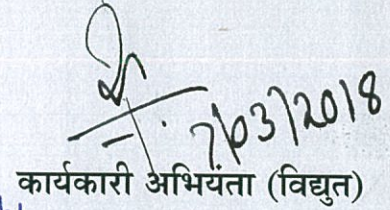 7/03/2018
कार्यकारी अभियंता (विद्युत)